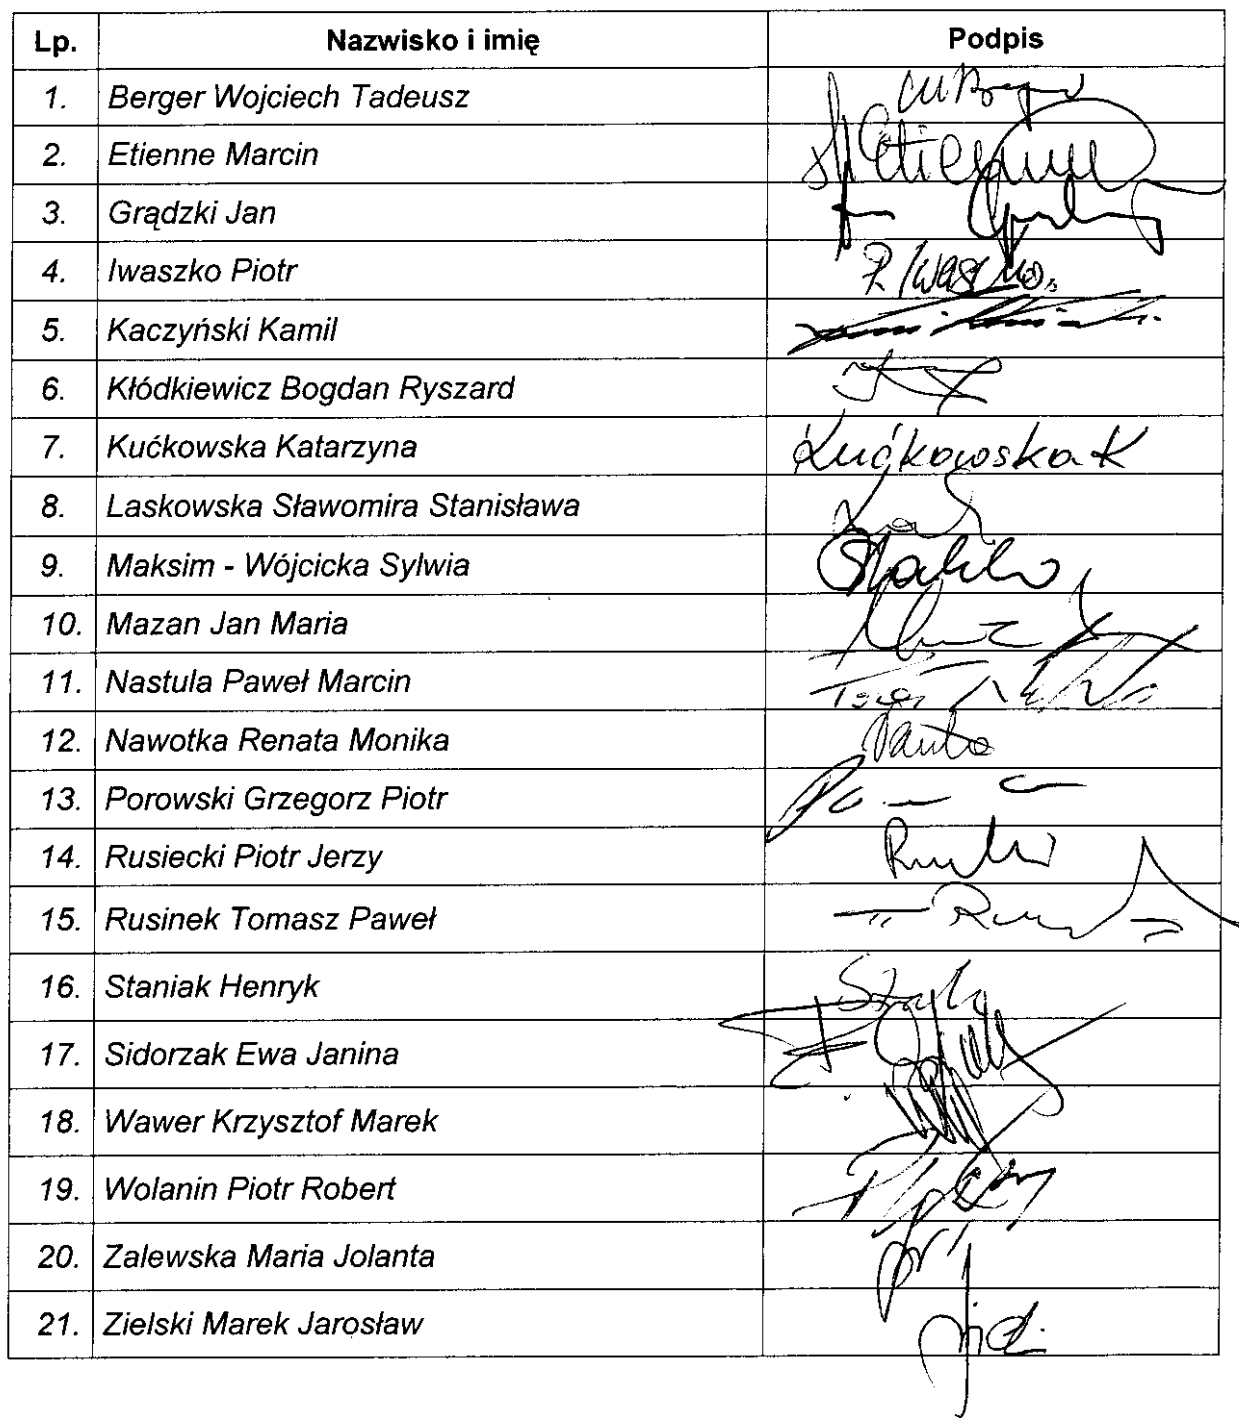 Lp. Nazwisko i imię Podpis
1. Berger Wojciech Tadeusz
2. Etienne Marcin Etienne
3. Grądzki Jan
4. Iwaszko Piotr P. Iwaszko
5. Kaczyński Kamil
6. Kłódkiewicz Bogdan Ryszard
7. Kućkowska Katarzyna Kućkowska K
8. Laskowska Sławomira Stanisława
9. Maksim - Wójcicka Sylwia
10. Mazan Jan Maria
11. Nastula Paweł Marcin
12. Nawotka Renata Monika
13. Porowski Grzegorz Piotr
14. Rusiecki Piotr Jerzy
15. Rusinek Tomasz Paweł
16. Staniak Henryk
17. Sidorzak Ewa Janina
18. Wawer Krzysztof Marek
19. Wolanin Piotr Robert
20. Zalewska Maria Jolanta
21. Zielski Marek Jarosław